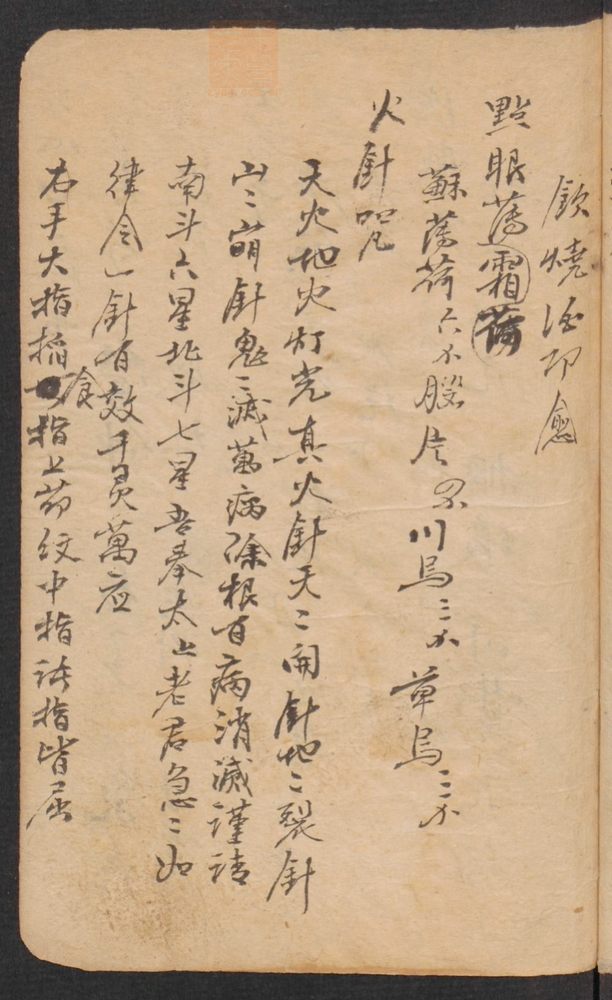 飲燒酒即愈
點眼薄霜荷
蘇薄荷六小 片 川烏三小 草烏三小
火針咒
天火地火灯光真火針天〻開針地〻裂針
山〻崩針鬼〻滅萬病除根百病消滅謹請
南斗六星北斗七星吾奉太上老君急〻如
律令一針有效千灵萬应
右手大指掐食指上節紋中指 指皆屈